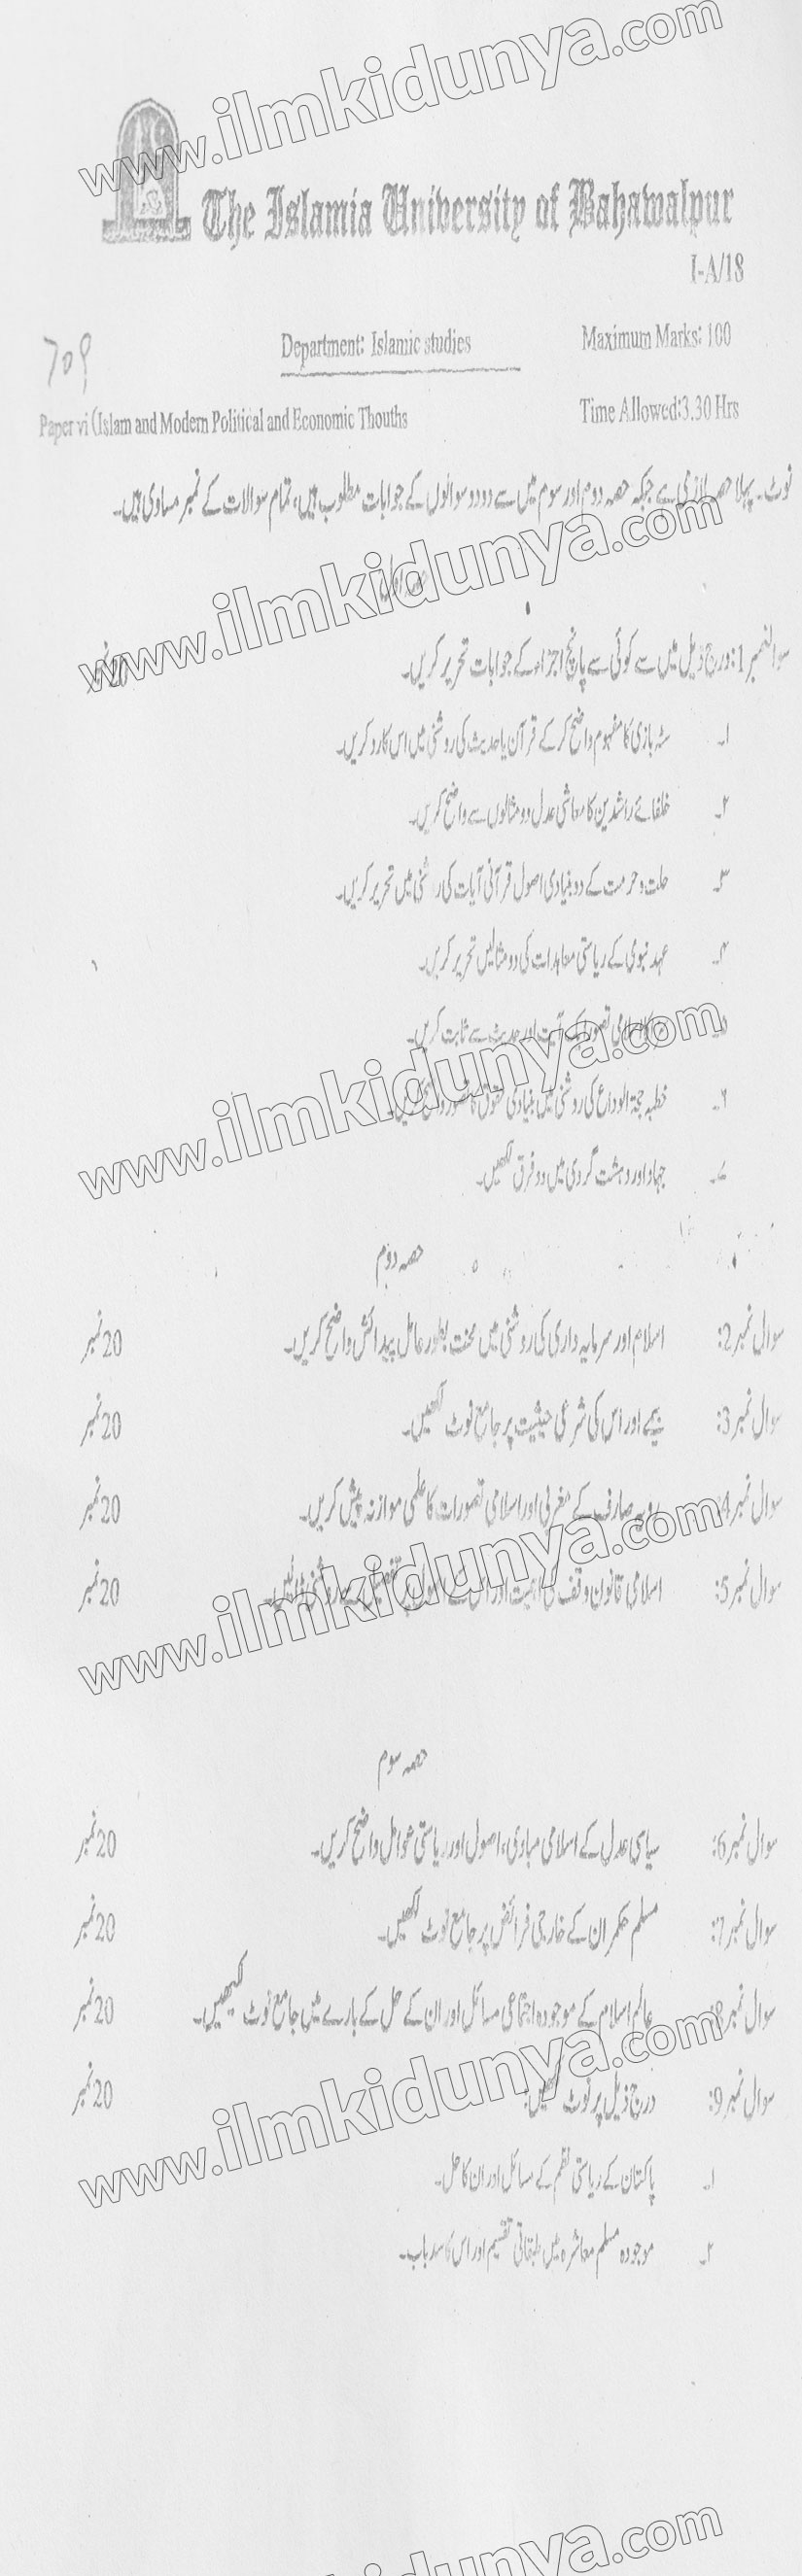 www.ilmkidunya.com
The Islamia University of Bahawalpur
I-A/18
709
Department: Islamic studies
Maximum Marks: 100
Paper vi (Islam and Modern Political and Economic Thouths
Time Allowed:3.30 Hrs
نوٹ۔ پہلا حصہ لازمی ہے جبکہ حصہ دوم اور سوم میں سے دو دو سوالوں کے جوابات مطلوب ہیں، تمام سوالات کے نمبر مساوی ہیں۔
www.ilmkidunya.com
حصہ اول
سوالنمبر1: درج ذیل میں سے کوئی سے پانچ اجزاء کے جوابات تحریر کریں۔ 20نمبر
۱۔ سٹہ بازی کا مفہوم واضح کر کے قرآن یا حدیث کی روشنی میں اس کا رد کریں۔
۲۔ خلفائے راشدین کا معاشی عدل دو مثالوں سے واضح کریں۔
۳۔ حلت و حرمت کے دو بنیادی اصول قرآنی آیات کی روشنی میں تحریر کریں۔
۴۔ عہد نبوی کے ریاستی معاہدات کی دو مثالیں تحریر کریں۔
۵۔ کا اسلامی تصور ایک آیت اور حدیث سے ثابت کریں۔
www.ilmkidunya.com
۶۔ خطبہ حجۃ الوداع کی روشنی میں بنیادی حقوق کا تصور واضح کریں۔
۷۔ جہاد اور دہشت گردی میں دو فرق لکھیں۔
حصہ دوم
سوال نمبر2: اسلام اور سرمایہ داری کی روشنی میں محنت بطور عامل پیدائش واضح کریں۔ 20نمبر
سوال نمبر3: بیمے اور اس کی شرعی حیثیت پر جامع نوٹ لکھیں۔ 20نمبر
سوال نمبر4: رویہ صارف کے مغربی اور اسلامی تصورات کا علمی موازنہ پیش کریں۔ 20نمبر
www.ilmkidunya.com
سوال نمبر5: اسلامی قانون وقف کی اہمیت اور اس کے اصول پر تفصیل سے روشنی ڈالیں۔ 20نمبر
حصہ سوم
سوال نمبر6: سیاسی عدل کے اسلامی مبادی، اصول اور ریاستی عوامل واضح کریں۔ 20نمبر
سوال نمبر7: مسلم حکمران کے خارجی فرائض پر جامع نوٹ لکھیں۔ 20نمبر
سوال نمبر8: عالم اسلام کے موجودہ اجتماعی مسائل اور ان کے حل کے بارے میں جامع نوٹ لکھیں۔ 20نمبر
www.ilmkidunya.com
سوال نمبر9: درج ذیل پر نوٹ لکھیں: 20نمبر
۱۔ پاکستان کے ریاستی نظم کے مسائل اور ان کا حل۔
۲۔ موجودہ مسلم معاشرہ میں طبقاتی تقسیم اور اس کا سدباب۔
www.ilmkidunya.com